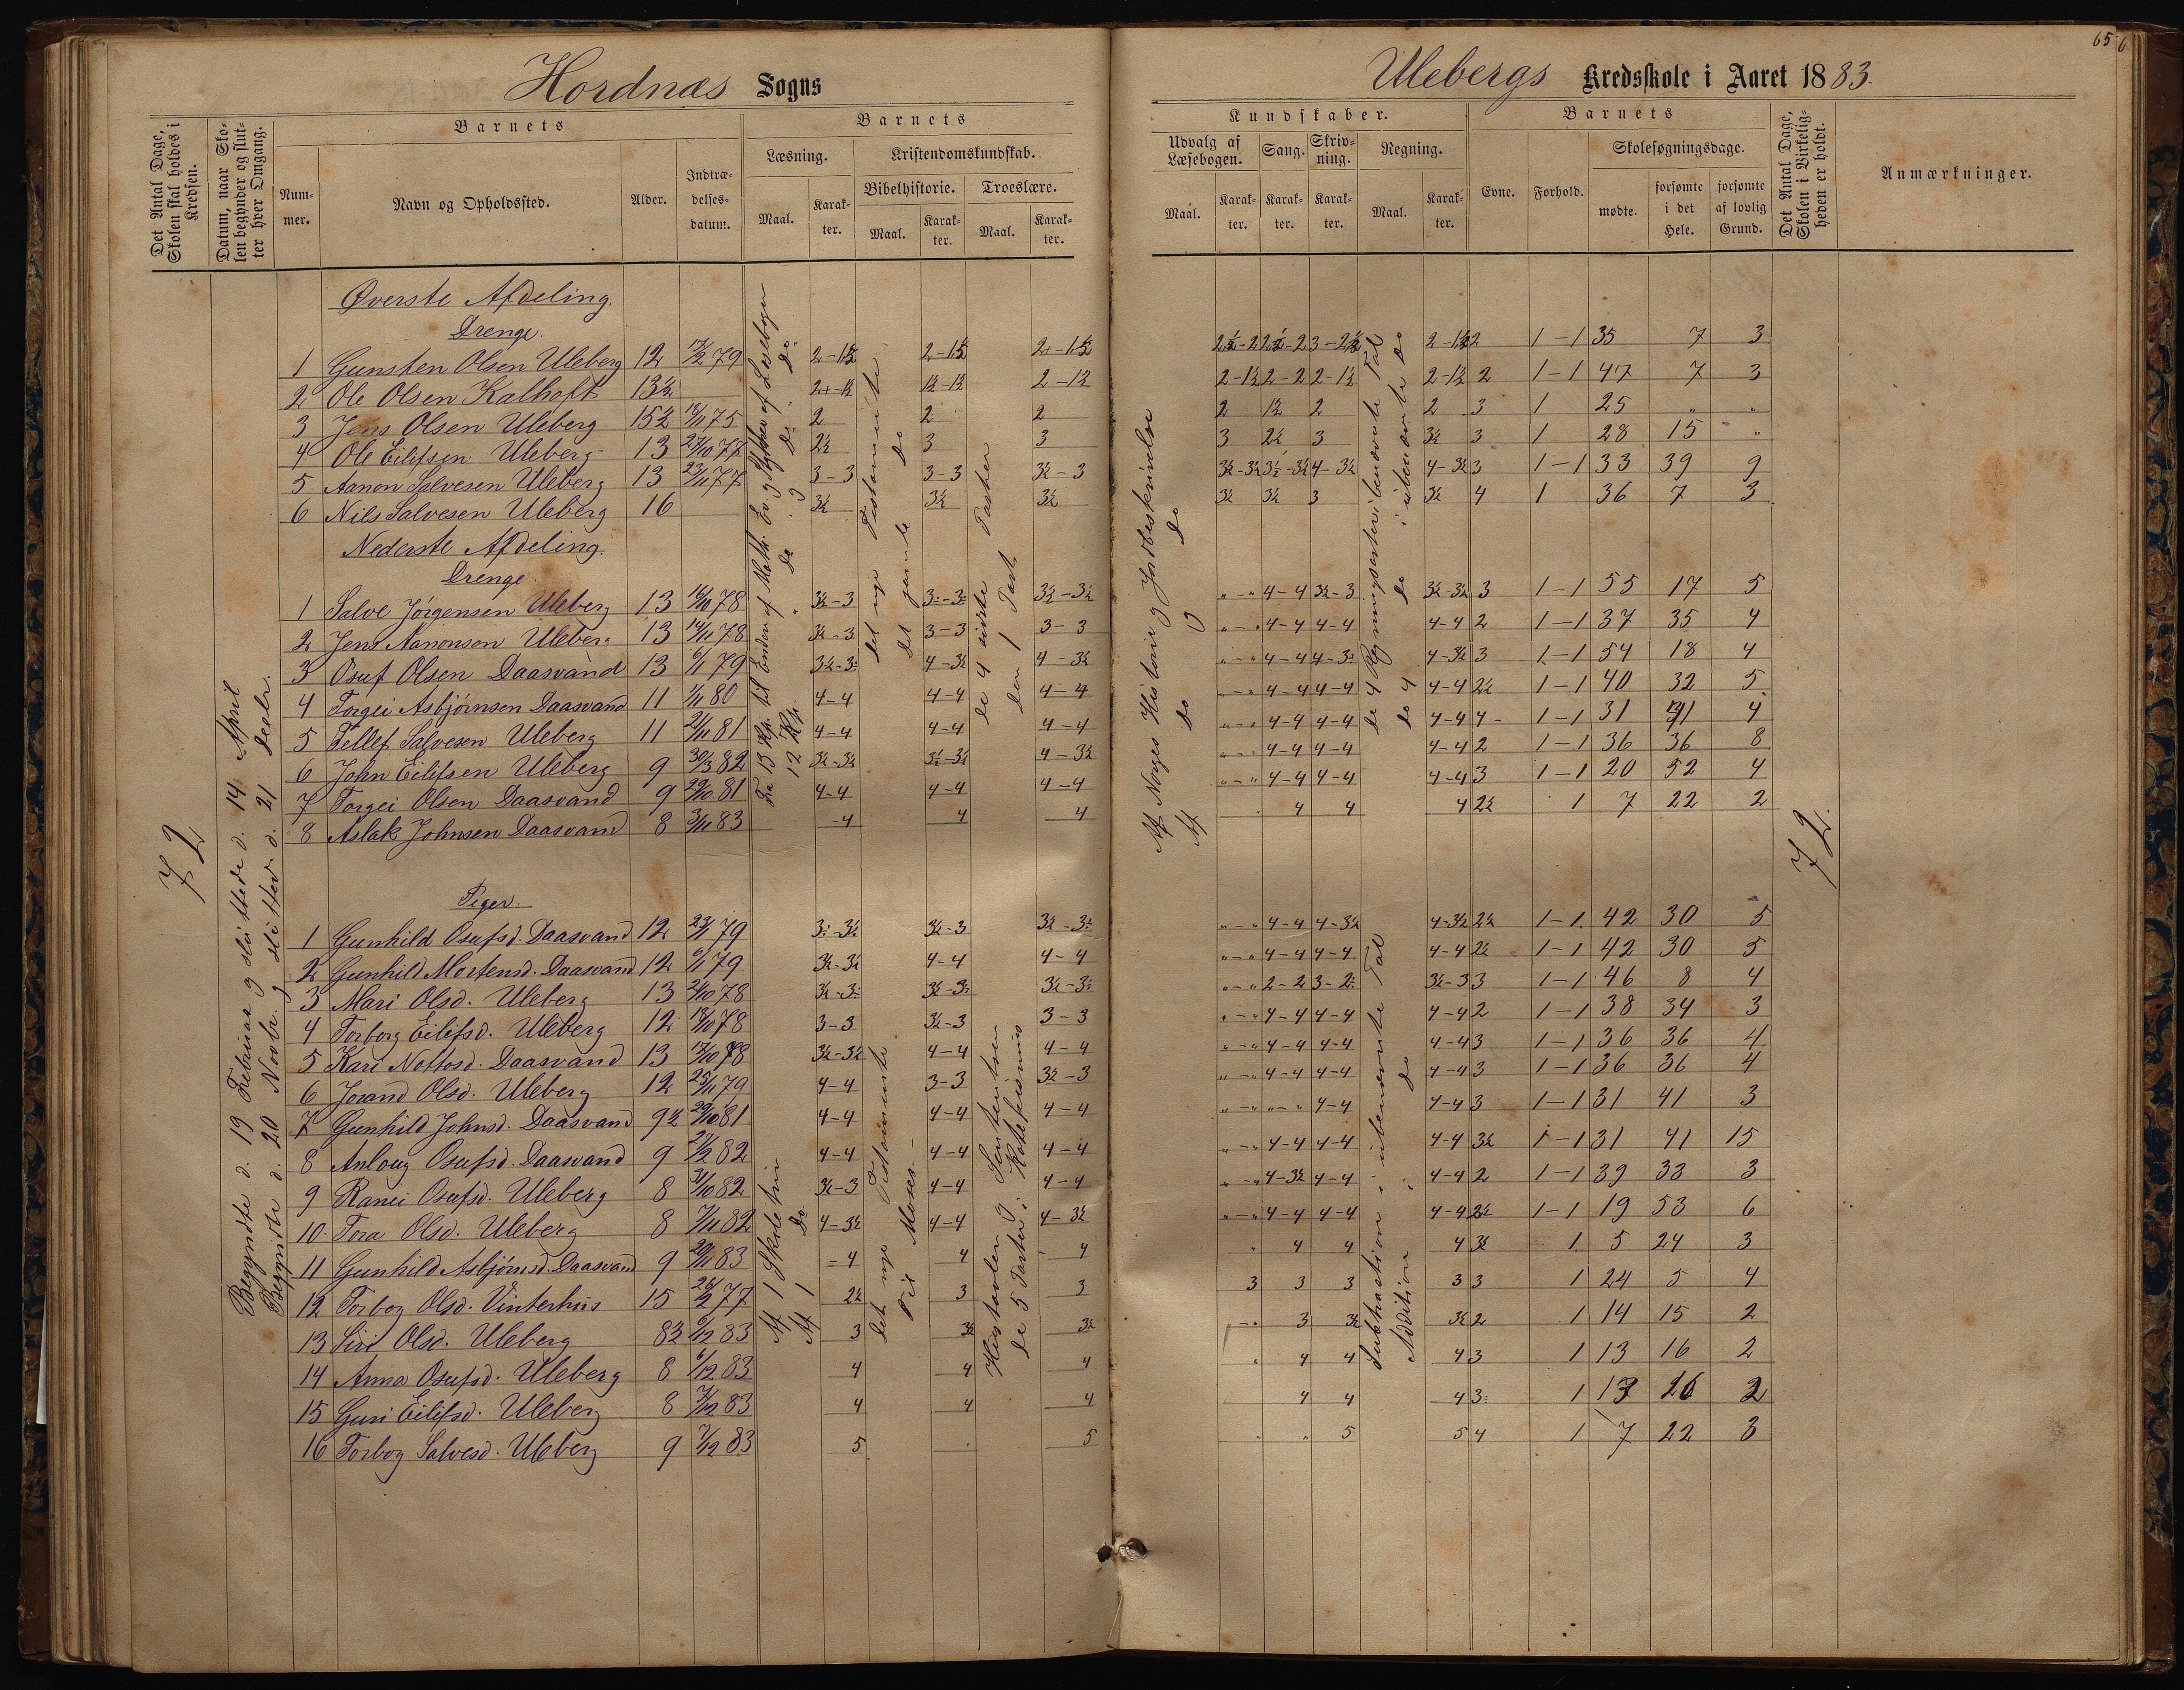 65
Hordnæs Sogns
Ulebergs Kredsskole i Aaret 1883.
Det Antal Dage, Skolen skal holdes i Kredsen.
Datum, naar Skolen begynder og slutter hver Omgang.
Barnets
Nummer.
Navn og Opholdssted.
Alder.
Indtrædelsesdatum.
Barnets
Læsning.
Maal.
Karakter.
Kristendomskundskab.
Bibelhistorie.
Maal.
Karakter.
Troeslære.
Maal.
Karakter.
Kundskaber.
Udvalg af Læsebogen.
Maal.
Karakter.
Sang.
Karakter.
Skrivning.
Karakter.
Regning.
Maal.
Karakter.
Barnets
Evne.
Forhold.
Skolesøgningsdage.
mødte.
forsømte i det Hele.
forsømte af lovlig Grund.
Det Antal Dage, Skolen i Virkeligheden er holdt.
Anmærkninger.
72
Begyndte d. 19 Februar og sluttede d. 14 April
Begyndte d. 20 Novbr. og sluttede d. 21 Decbr.
Øverste Afdeling.
Drenge.
1 Gunsten Olsen Uleberg 12 2-1½ 2-1½ 2½-2 2½-2 3-2½ 2-1½ 2 1-1 35 7 3
2 Ole Olsen Kalhoft 13½ 1½-1½ 2-1½ 2-1½ 2-2 2-1½ 2-1½ 2 1-1 47 7 3
3 Jens Olsen Uleberg 15½ 18/11 75 2 2 2 2 1½ 2 2 3 1 25 " "
4 Ole Eilifsen Uleberg 13 27/10 77 2½ 3 3 3 2½ 3 3½ 3 1 28 15 "
5 Aanon Salvesen Uleberg 13 23/11 77 3-3 3-3 3½-3 3½-3½ 3½-3½ 4-3½ 4-3½ 3 1-1 33 39 9
6 Nils Salvesen Uleberg 16 3½ 3½ 3½ 3½ 3½ 3 3½ 4 1 36 7 3
Nederste Afdeling.
Drenge.
1 Salve Jörgensen Uleberg 13 16/10 78 3½-3 3½-3½ "-" 4-4 3½-3 3½-3½ 3 1-1 55 17 5
2 Jens Aanonsen Uleberg 13 14/11 78 3½-3 3-3 3-3 "-" 4-4 4-4 4-4 2 1-1 37 35 4
3 Osuf Olsen Daasvand 13 6/1 79 4-3½ 4-3½ "-" 4-4 4-3½ 3 1-1 54 18 4
4 Torgei Asbjörnsen Daasvand 11 1/11 80 4-4 4-4 4-4 "-" 4-4 4-4 4-4 2½ 1-1 40 32 5
5 Tellef Salvesen Uleberg 11 21/11 81 4-4 4-4 4-4 "-" 4-4 4-4 4-4 4 1-1 31 41 4
6 John Eilifsen Uleberg 9 30/3 82 3½-3½ 3½-3½ 4-3½ "-" 4-4 4-4 4-4 2 1-1 36 36 8
7 Torgei Olsen Daasvand 9 29/10 81 4-4 4-4 4-4 "-" 4-4 4-4 4-4 3 1-1 20 52 4
8 Aslak Johnsen Daasvand 8 3/11 83 4 4 4 4 4 4 2½ 1 7 22 2
Piger.
1 Gunhild Osufsd. Daasvand 12 23/1 79 3½-3 "-" 4-4 4-3½ 4-3½ 2½ 1-1 42 30 5
2 Gunhild Mortensd. Daasvand 12 6/1 79 3½-3½ 4-4 4-4 "-" 4-4 4-4 4-4 2½ 1-1 42 30 5
3 Mari Olsd. Uleberg 13 "-" 2-2 3½-3 3 1-1 46 8 4
4 Torborg Eilifsd. Uleberg 12 18/10 78 3-3 3½-3 3-3 "-" 4-4 4-4 4-4 2 1-1 38 34 3
5 Kari Nottosd. Daasvand 13 78 3½-3½ 4-4 4-4 "-" 4-4 4-4 4-4 3 1-1 36 36 4
6 Jorand Olsd. Uleberg 12 25/11 79 4-4 3-3 3½-3 "-" 4-4 4-4 4-4 3 1-1 36 36 4
7 Gunhild Johnsd. Daasvand 9½ 29/10 81 4-4 4-4 4-4 "-" "-" 4-4 4-4 3 1-1 31 41 3
8 Anlaug Osufsd. Daasvand 9 82 4-4 4-4 4-4 "-" 4-4 4-4 4-4 3½ 1-1 31 41 15
9 Ranei Osufsd. Uleberg 8 31/10 82 3½-3 4-4 4-4 "-" 4-3½ 4-4 4-4 2 1-1 39 33 3
10 Tora Olsd. Uleberg 8 7/11 82 4-3½ 4-4 4-3½ "-" 4-4 4-4 4-4 2½ 1-1 19 53 6
11 Gunhild Asbjörnsd. Daasvand 9 83 4 4 4 " 4 4 4 3½ 1 5 24 3
12 Torbog Olsd. Vinterhus 15 26/2 77 2½ 3 3 3 3 3 3 3 1 24 5 4
13 Siri Olsd. Uleberg 8½ 6/12 83 3 3½ 3½ 3 3½ 3½ 2 1 14 15 2
14 Anna Osufsd. Uleberg 8 6/12 83 4 4 4 4 4 4 3 1 13 16 2
15 Guri Eilifsd. Uleberg 8 7/12 83 4 4 4 4 4 4 3 1 13 2
16 Torbog Salvesd. Uleberg 9 7/12 83 5 5 5 5 4 1 7 22 3
Fra 13 Kp. til Enden af Math. Ev. og Stykker af Læsebogen
12 Kp. Do Do og Do Do
det nye Testamente
det gamle Do
de 4 sidste Parter
den 1 Part
Af Norges Historie og Jordbeskrivelse
Af Do og Do
de 4 Regningsarter i benævnte Tal
do 4 do i ubenævnte do
Af 1 Skoletrin
Af 1 Do
Det nye Testamente
Til Moses
Hustavlen og Sententsen
de 5 Parter i Katekismus
Subtraction i ubenævnte Tal
Addition i do
72